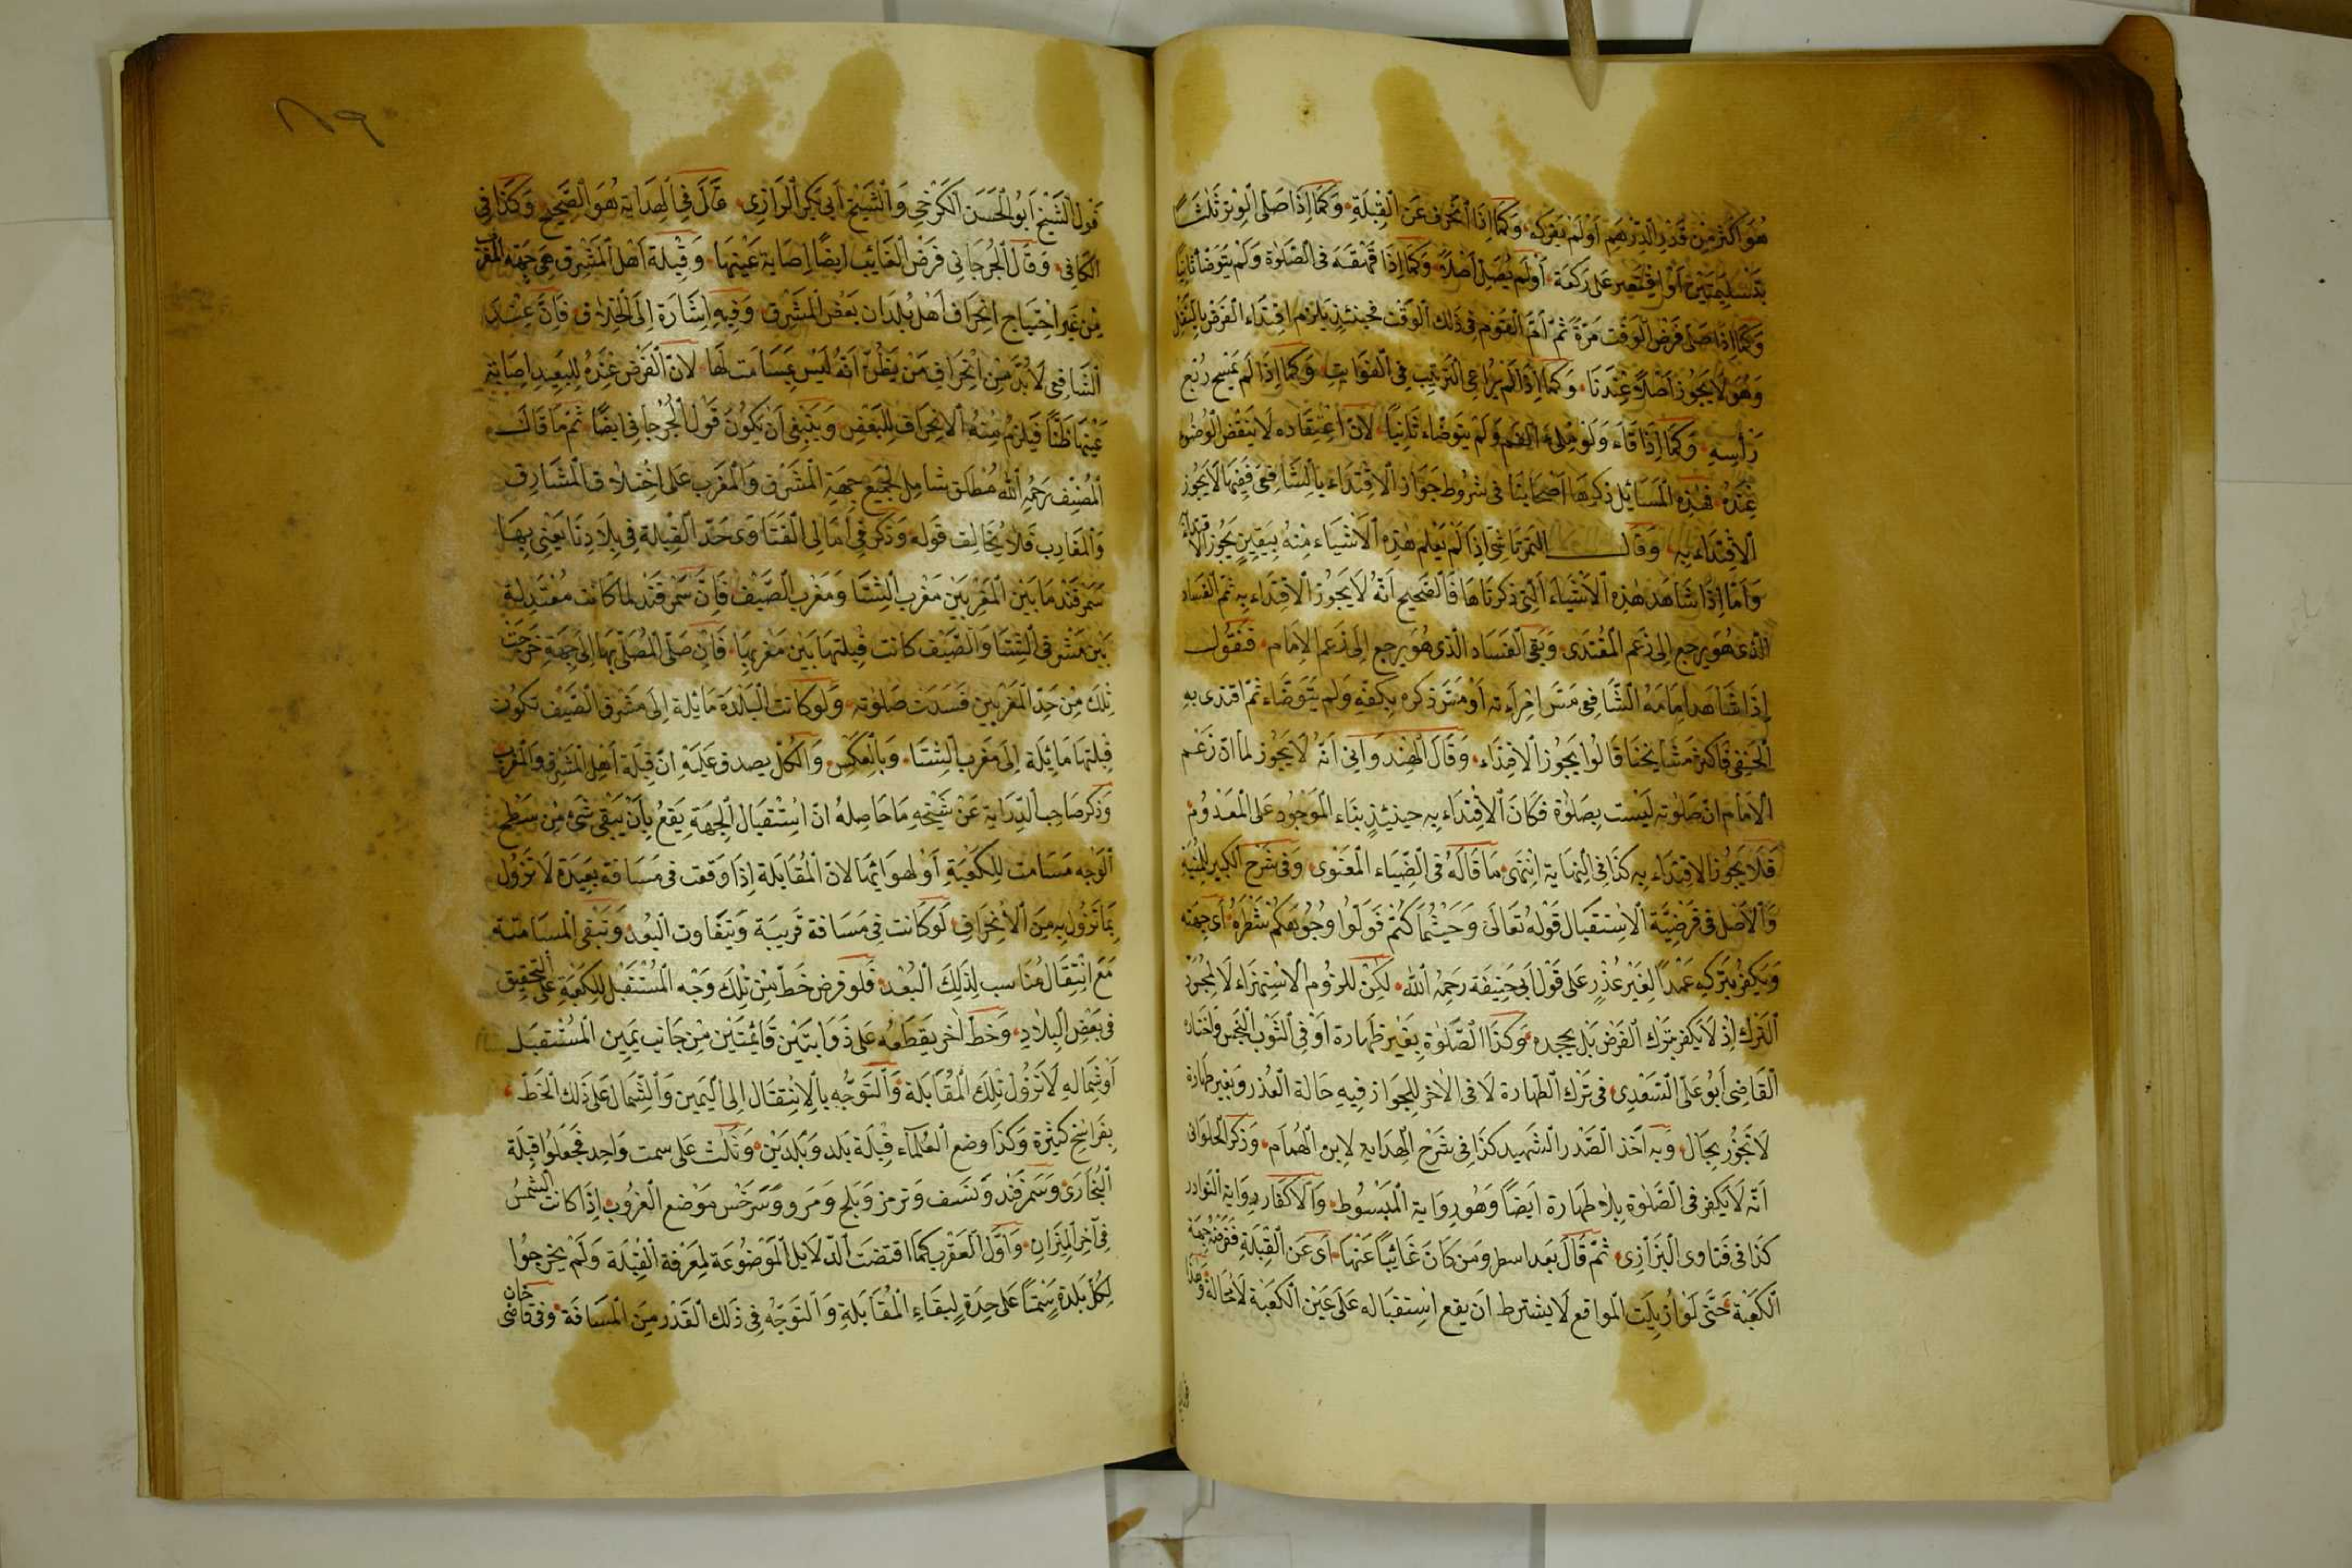 هُوَ اَكْثَرُ مِنْ قَدْرِ الدِّرْهَمِ اَوْ لَمْ يَفْرُكْهُ وَكَمَا اِذَا انْحَرَفَ عَنِ الْقِبْلَةِ وَكَمَا اِذَا صَلَّى الْوِتْرَ ثَلٰثًا
بِتَسْلِيمَتَيْنِ اَوْ اقْتَصَرَ عَلَى رَكْعَة اَوْ لَمْ يُصَلِّ اَصْلًا وَكَمَا اِذَا قَهْقَهَ فِى الصَّلٰوةِ وَلَمْ يَتَوَضَّأْ ثَانِيًا
وَكَمَا اِذَا صَلَّى فَرْضَ الْوَقْتِ مَرَّةً ثُمَّ اَمَّ الْقَوْم فِى ذٰلِكَ الْوَقْت فحينئذ يَلْزم اقْتِدَاء الْفَرْض بِالنَّفْل
وَهُوَ لَا يَجُوز اَصْلًا عِنْدَنَا وَكَمَا اِذَا لَمْ يُرَاعِى التَّرْتِيب فِى الْفَوَائِتِ وَكَمَا اِذَا لَمْ يَمْسَحْ رُبْعَ
رَأْسِهِ وَكَمَا اِذَا قَاءَ وَلَوْ مِلْءَ الْفَم وَلَمْ يَتَوَضَّاء ثَانِيًا لِاَنَّ اعْتِقَادَه لَا يَنْقُضُ الْوُضُوءَ
عِنْدَهُ فَهٰذِه الْمَسَائِل ذكرهَا اَصْحَابُنَا فى شُرُوط جَوَاز الْاِقْتِدَاء بِالشَّافِعى فَفِيهَا لَا يَجُوز
الْاِقْتِدَاء بِه وَقَالَ التُّمُرْتَاشِى اِذَا لَمْ يَعْلَم هٰذِهِ الْاَشْيَاء مِنْهُ بِيَقِينٍ يَجُوز الْاقتداء
وَاَمَّا اِذَا شَاهَدَ هٰذِهِ الْاَشْيَاءَ الَّتِى ذكرنَاهَا فَالصَّحِيح اَنَّهُ لَا يَجُوزُ الْاقْتِدَاء بِه ثُمَّ الْفَسَاد
الَّذِى هُوَ يرجع اِلَى زَعْم الْمُقْتَدى وَبَقِىَ الْفَسَاد الَّذى هُوَ يرجع اِلَى زَعْم الْاِمَام فَنَقُول
اِذَا شَاهَدَ اِمَامَهُ الشَّافِعى مَسَّ امْرَأَته اَوْ مَسَّ ذكره بِكَفِّه وَلَم يَتَوَضَّاء ثُمَّ اقتدى بِهِ
الْحَنَفِى فَاكثر مَشَايِخنَا قَالُوا يَجُوز الْاقتدَاء وَقَالَ الْهِنْدُوَانِى اَنَّهُ لَا يَجُوز لما انّ زَعْم
الْاِمَام انّ صَلٰوته لَيْسَت بِصَلٰوة فَكَانَ الْاقْتِدَاء بِه حينئذٍ بِنَاء الْمَوْجُود عَلَى الْمَعْدُوم
فَلَا يَجُوز الْاقْتِدَاء بِه كَذَا فِى النِّهَايَة انْتَهَى مَا قَالَهُ فِى الضِّيَاء الْمَعْنَوِى وَفِى شَرْح الْكَبِير لِلْمُنْيَةِ
وَالْاَصْل فِى فَرْضِيَّة الْاِسْتِقْبَال قَوْلُه تَعَالَى وَحَيْثُمَا كُنْتُمْ فَوَلُّوا وُجُوهَكُمْ شَطْرَهُ اَى جِهَته
وَيَكْفُر بِتَرْكِهِ عَمْدًا لِغَيْرِ عُذْرٍ عَلَى قَوْلِ اَبِى حَنِيفَة رَحِمَهُ اللّٰه لٰكِنْ للزُوم الْاسْتِهْزَاء لَا لِمُجَرَّد
التَّرْك اِذْ لَا يَكفر بِتَرْك الْفَرْض بَلْ بجحده وَكَذَا الصَّلٰوة بِغَيْرِ طَهَارَة اَوْ فِى الثَّوْب النَّجِس وَاخْتَاره
الْقَاضِى اَبُو عَلِىّ السُّغْدِى فِى تَرْك الطَّهَارَة لَا فى الْاٰخَر لِلْجَوَازِ فِيهِ حَالَة الْعُذْر وَبِغَيْر طَهَارة
لَا تَجُوز بِحَال وَبِه اَخَذ الصَّدْر الشَّهِيد كَذَا فِى شَرْح الْهِدَايَه لِابن الْهُمَام وَذَكَر الْحَلْوَانِى
اَنَّه لَا يَكفر فِى الصَّلٰوة بِلَا طَهَارَة اَيْضًا وَهُو رِوَايَة الْمَبْسُوط وَالْاِكْفَار رِوَايَة النَّوَادِر
كَذَا فى فَتَاوى الْبَزَّازِى ثُمَّ قَالَ بَعد اسطر وَمَن كَانَ غَائِبًا عَنْهَا اَىْ عَن الْقِبْلَةِ فَفَرْضُهُ جِهَة
الْكَعْبَة حَتَّى لَوْ اُزِيلَت الْمَوَانع لَا يشترط انْ يقع اسْتِقْبَاله عَلَى عَيْن الْكَعْبَة لَا مَحَالَة وَهٰذَا
قَوْل الشَّيْخ اَبُو الْحَسَن الْكَرْخِى وَالشَّيْخ اَبِى بَكْر الرَّازِى قَالَ فِى الْهِدَايَة هُوَ الصَّحِيح وَكَذَا فِى
الْكَافِى وَقَالَ الْجُرْجَانِى فَرْض الْغَائِب اَيْضًا اِصَابَة عَيْنِهَا وَقِبْلَة اَهْل الْمَشْرِق هِىَ جِهَة الْمَغْرِب
مِن غَيْر احْتِيَاج انْحِرَاف اَهْل بُلْدَان بَعْض الْمَشْرِق وَفِيهِ اِشَارَة اِلَى الْخِلَاف فَاِنَّ عِنْدَ
الشَّافِعِى لَا بُدَّ مِنْ انْحِرَافِ مَنْ يَظُنّ اَنَّهُ لَيْسَ بِمُسَامِت لَهَا لِاَنَّ الْفَرْض عِنْدَهُ لِلْبَعِيد اِصَابَة
عَيْنِهَا ظَنًّا فَيَلْزَمُ مِنْهُ الْاِنْحِرَاف لِلْبَعْضِ وَيَنْبَغِى اَنْ يَكُونَ قَوْل الْجُرْجَانِى اَيْضًا ثُمَّ مَا قَالَهُ
الْمُصَنِّف رَحِمَهُ اللّٰه مُطْلَق شَامِل لِجَمِيع جِهَةِ الْمَشْرِق وَالْمَغْرِب عَلَى اخْتِلَاف الْمَشَارِق
وَالْمَغَارِب فَلَا يُخَالِف قَوْله وَذكر فِى اَمَالِى الْفَتَاوى حَدّ الْقِبْلَة فِى بِلَادِنَا يَعْنِى بِهَا
سَمَرْقَنْد مَا بَيْن الْمَغْرِبَيْن مَغْرِب الشِّتَا وَمَغْرِب الصَّيْف فَاِنّ سَمَرْقَنْد لَمَا كَانَت مُعْتَدِلَة
بَيْن مَشْرِقِى الشِّتَا وَالصَّيْف كانت قِبْلَتهَا بَيْن مَغْرِبَيْهَا فَاِنْ صَلَّى الْمُصَلّى بِهَا اِلَى جِهَةٍ خَرَجَتْ
تِلْكَ مِنْ حَدّ الْمَغْرِبَيْن فَسَدَت صَلٰوته وَلَو كَانَت الْبَلْدَة مَائِلَة اِلَى مَشْرِق الصَّيْف تكُون
قِبْلتهَا مَائِلَة اِلَى مَغْرِب الشِّتَا وَبِالْعَكْس وَالْكُلّ يصدق عَلَيْهِ انّ قِبْلَة اَهْل الْمَشْرِق وَالْمَغْرِب
وَذكر صَاحِب الدِّرَايَة عَنْ شَيْخِهِ مَا حَاصِلهُ انّ اسْتِقْبَال الْجِهَة يَقَعُ بِاَنْ يَبْقَى شَىْء مِنْ سَطْح
الْوَجْه مُسَامِت لِلْكَعْبَة اَوْ لِهَوَائِهَا لِاَنَّ الْمُقَابَلَة اِذَا وَقعت فى مَسَافَة بَعِيدَة لَا تَزُول
بِمَا تَزُول بِهِ مِنَ الْاِنْحِرَافِ لَو كَانت فِى مَسَافَة قَرِيبَة وَيَتَفَاوت الْبُعْد وَتَبْقَى الْمُسَامَتَة
مَعَ انْتِقَال مُنَاسب لِذٰلِكَ الْبُعْد فَلَو فرض خَطّ مِنْ تِلْكَ وَجْه الْمُسْتَقْبِل لِلْكَعْبَةِ عَلَى التَّحْقِيق
فِى بَعْض الْبِلَادِ وَخَطّ اٰخر يقطَعهُ عَلَى ذَوَايَتَيْن قَائِمَتَيْن مِنْ جَانِب يَمِين الْمُسْتَقْبِل
اَوْ شِمَالِهِ لَا تَزُول تِلْكَ الْمُقَابَلَة وَالتَّوَجُّه بِالْاِنْتِقَال اِلَى الْيَمِين وَالشِّمَال عَلَى ذٰلِكَ الْخَطّ
بِفَرَاسِخ كَثِيرَة وَكَذَا وضع الْعُلَمَاء قِبْلَة بَلَد وَبَلَدَيْن وَثَلٰث عَلَى سمت وَاحِد فَجَعَلُوا قِبْلَة
الْبُخَارَى وَسَمَرْقَنْد وَنَسَف وَترمز وَبَلْخ وَمَرْو وَسَرَخْس مَوْضع الْغُرُوب اِذَا كَانَت الشَّمْسُ
فِى اٰخر الْمِيزَان وَاَوَّل الْعَقْرَب كَمَا اقتضَت الدَّلَائِل الْمَوْضُوعَة لِمَعْرِفَة الْقِبْلَة وَلَمْ يخرجوا
لِكُلّ بَلْدَة سَمْتًا عَلَى حِدَةٍ لِبَقَاءِ الْمُقَابَلَةِ وَالتَّوَجُّه فِى ذٰلِكَ الْقَدْر مِنَ الْمَسَافَة وَفِى قَاضِى خَان